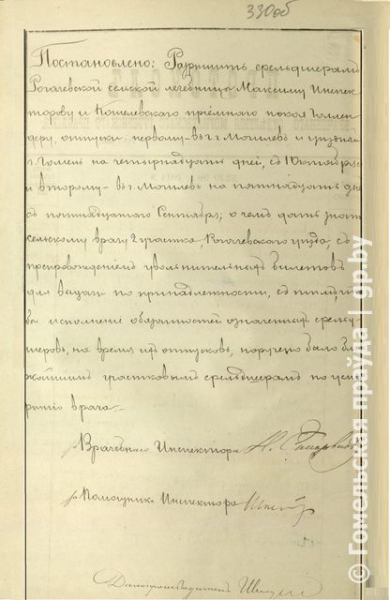 330об
Постановлено: Разрешить фельдшерамъ
Рогачевской сельской лечебницы Максиму Инспек-
торову и Кошелевскаго приёмнаго покоя
отпуски первому – въ г. Могилевъ и уездный
г. Гомель на четырнадцать дней, съ 10 октября
и второму – въ г. Могилевъ на пятнадцать дн
съ пятнадцатаго Сентября; о чемъ дать знать
сельскому врачу 2 участка, Рогачевскаго уезда, съ
препровожденiемъ увольнительныхъ билетовъ
для выдачи по принадлежности, съ тѣмъ, что
бы исполненiе обязанностей означенныхъ фельд-
шеровъ, на время ихъ отпусковъ, поручено было бли-
жайшимъ участковымъ фельдшерамъ по усмо-
трѣнiю врача.
Врачебный Инспекторъ
Помощникъ Инспектора
Делопроизводитель
© Гомельская праўда | gp.by